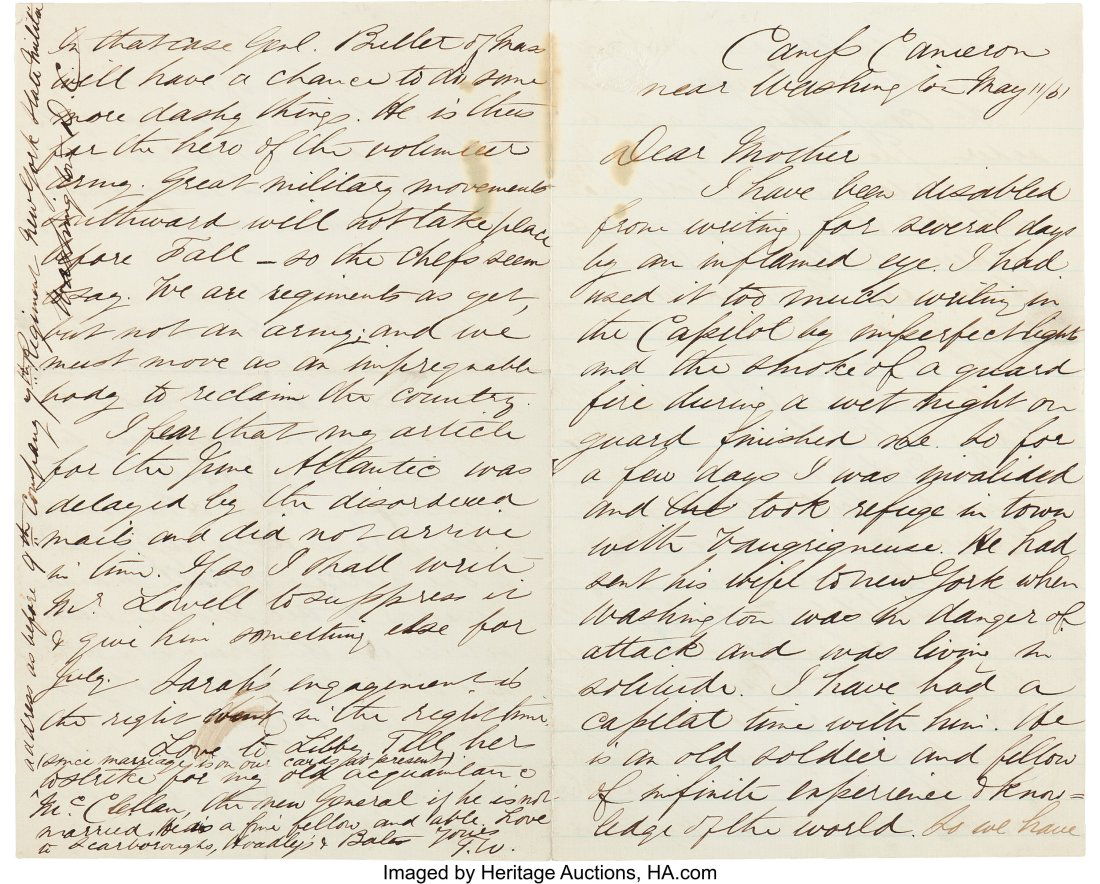 Camp Cameron
near Washington May 11/61
Dear Mother
I have been disabled
from writing for several days
by an inflamed eye. I had
used it too much writing in
the Capitol by imperfect light
and the smoke of a guard
fire during a wet night on
guard finished me. So for
a few days I was invalided
and took refuge in town
with Vaugrigneuse. He had
sent his wife to New York when
Washington was in danger of
attack and was living in
solitude. I have had a
capital time with him. He
is an old soldier and fellow
of infinite experience & know=
ledge of the world. So we have
In that case Genl. Butler of Mass
will have a chance to do some
more dashy things. He is thus
far the hero of the volunteer
army. Great military movements
southward will not take place
before Fall — so the chefs seem
to say. We are regiments as yet,
but not an army; and we
must move as an impregnable
body to reclaim the country.
I fear that my article
for the June Atlantic was
delayed by the disordered
mails and did not arrive
in time. If so I shall write
Mr. Lowell to suppress it
& give him something else for
July. Sarah's engagement is
the right in the right time
Love to Libby. Tell her
(since marriage is on our cards at present)
to strike for my old acquaintance
McClellan, the new General if he is not
married. He is a fine fellow and able. Love
to Scarboroughs, Hoadleys & Bates Yours
T.W.
address as before 9th Company 7th Regiment New York State Militia
Washington D.C.
Imaged by Heritage Auctions, HA.com